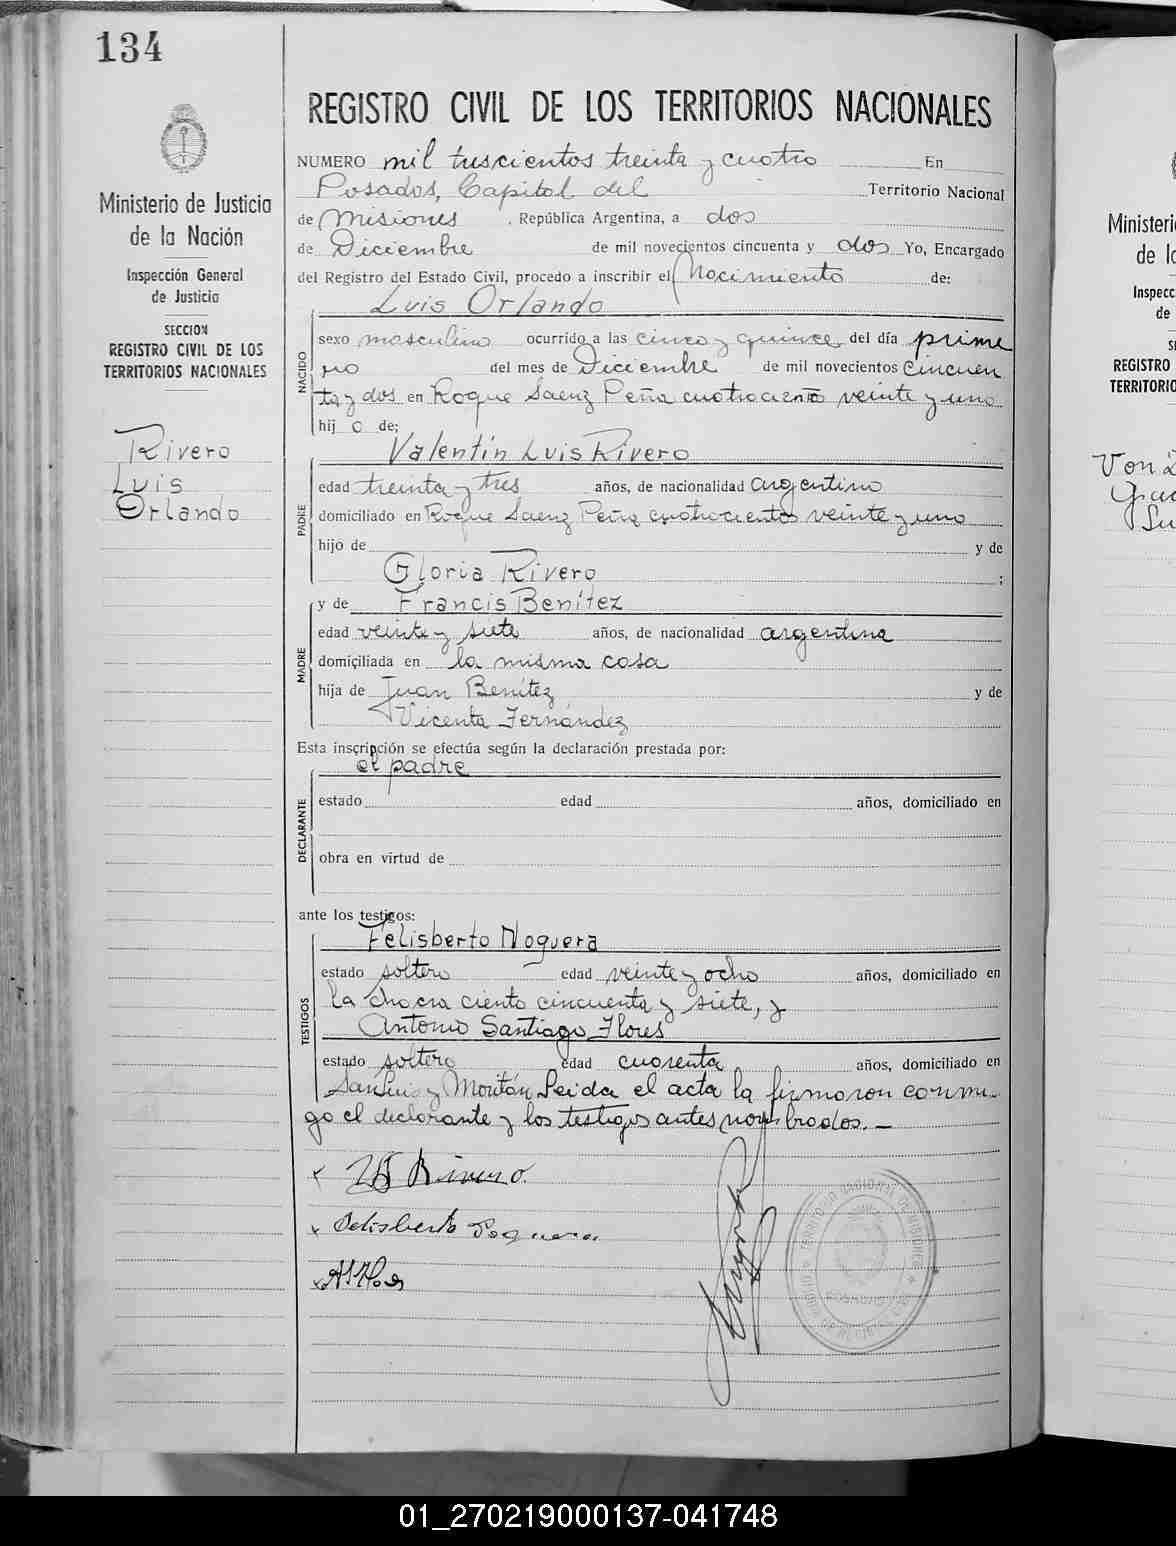 134
Ministerio de Justicia
de la Nación
Inspección General
de Justicia
SECCION
REGISTRO CIVIL DE LOS
TERRITORIOS NACIONALES
Rivero
Luis
Orlando
REGISTRO CIVIL DE LOS TERRITORIOS NACIONALES
NUMERO mil trescientos treinta y cuatro En
Posadas, Capital del Territorio Nacional
de Misiones, República Argentina, a dos
de Diciembre de mil novecientos cincuenta y dos Yo, Encargado
del Registro del Estado Civil, procedo a inscribir el Nacimiento de:
Luis Orlando
NACIDO
sexo masculino ocurrido a las cinco y quince del día prime
ro del mes de Diciembre de mil novecientos cincuen
ta y dos en Roque Saenz Peña cuatrociento veinte y uno
hij o de:
Valentín Luis Rivero
PADRE
edad treinta y tres años, de nacionalidad argentino
domiciliado en Roque Saenz Peña cuatrocientos veinte y uno
hijo de y de
Gloria Rivero ;
y de Francis Benítez
MADRE
edad veinte y siete años, de nacionalidad argentina
domiciliada en la misma casa
hija de Juan Benítez y de
Vicenta Fernández
Esta inscripción se efectúa según la declaración prestada por:
el padre
DECLARANTE
estado edad años, domiciliado en
obra en virtud de
ante los testigos:
Felisberto Noguera
TESTIGOS
estado soltero edad veinte y ocho años, domiciliado en
la chacra ciento cincuenta y siete, y
Antonio Santiago Flores
estado soltero edad cuarenta años, domiciliado en
San Luis y Moritán Leida el acta la firmaron conmi-
go el declarante y los testigos antes nombrados.—
x Rivero.
x Felisberto Noguera
x
TERRITORIO NACIONAL DE MISIONES
POSADAS
Ministeri
de lo
Inspecc
de
REGISTRO
TERRITORIO
Von
01_270219000137-041748